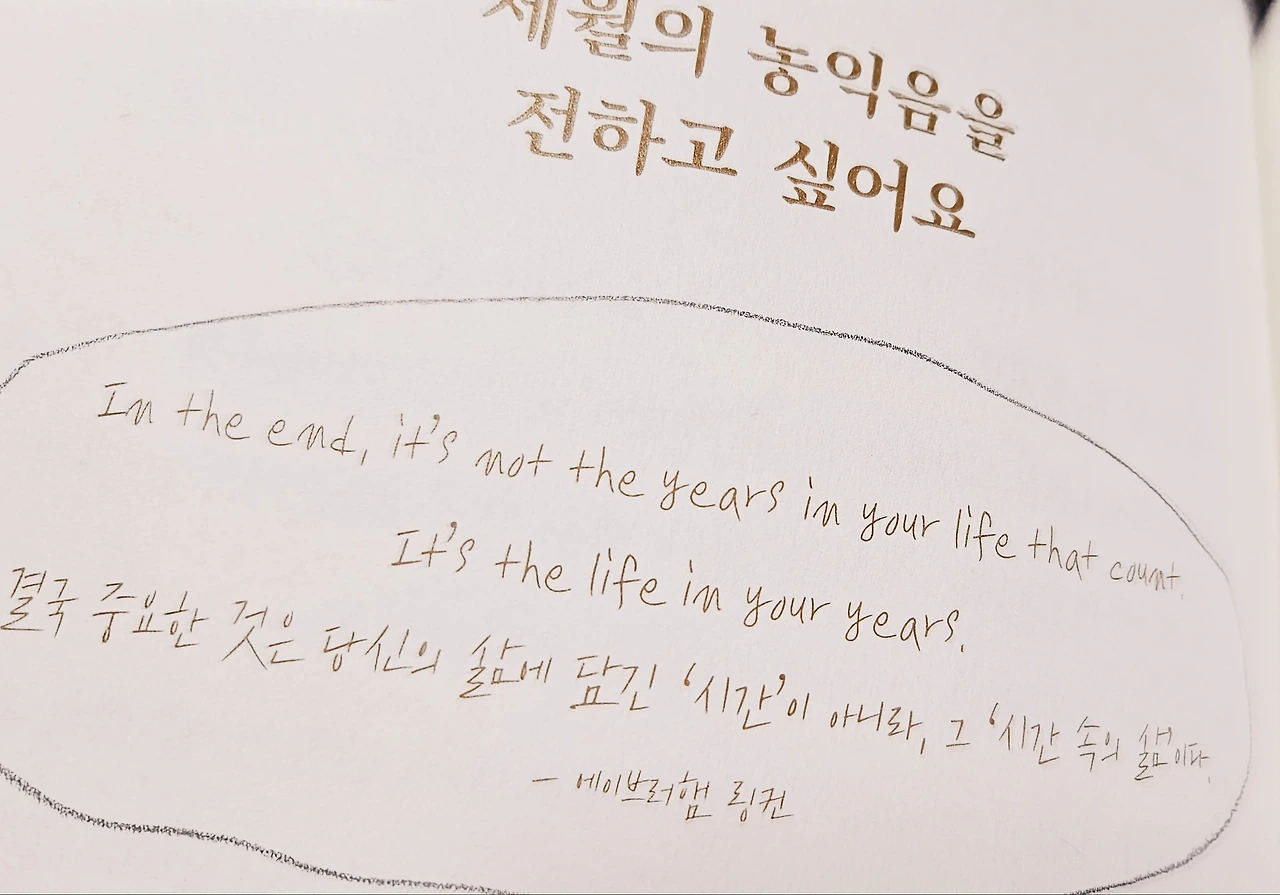 세월의 농익음을
전하고 싶어요
In the end, it's not the years in your life that count.
It's the life in your years.
결국 중요한 것은 당신의 삶에 담긴 '시간'이 아니라, 그 '시간 속의 삶'이다.
- 에이브러햄 링컨